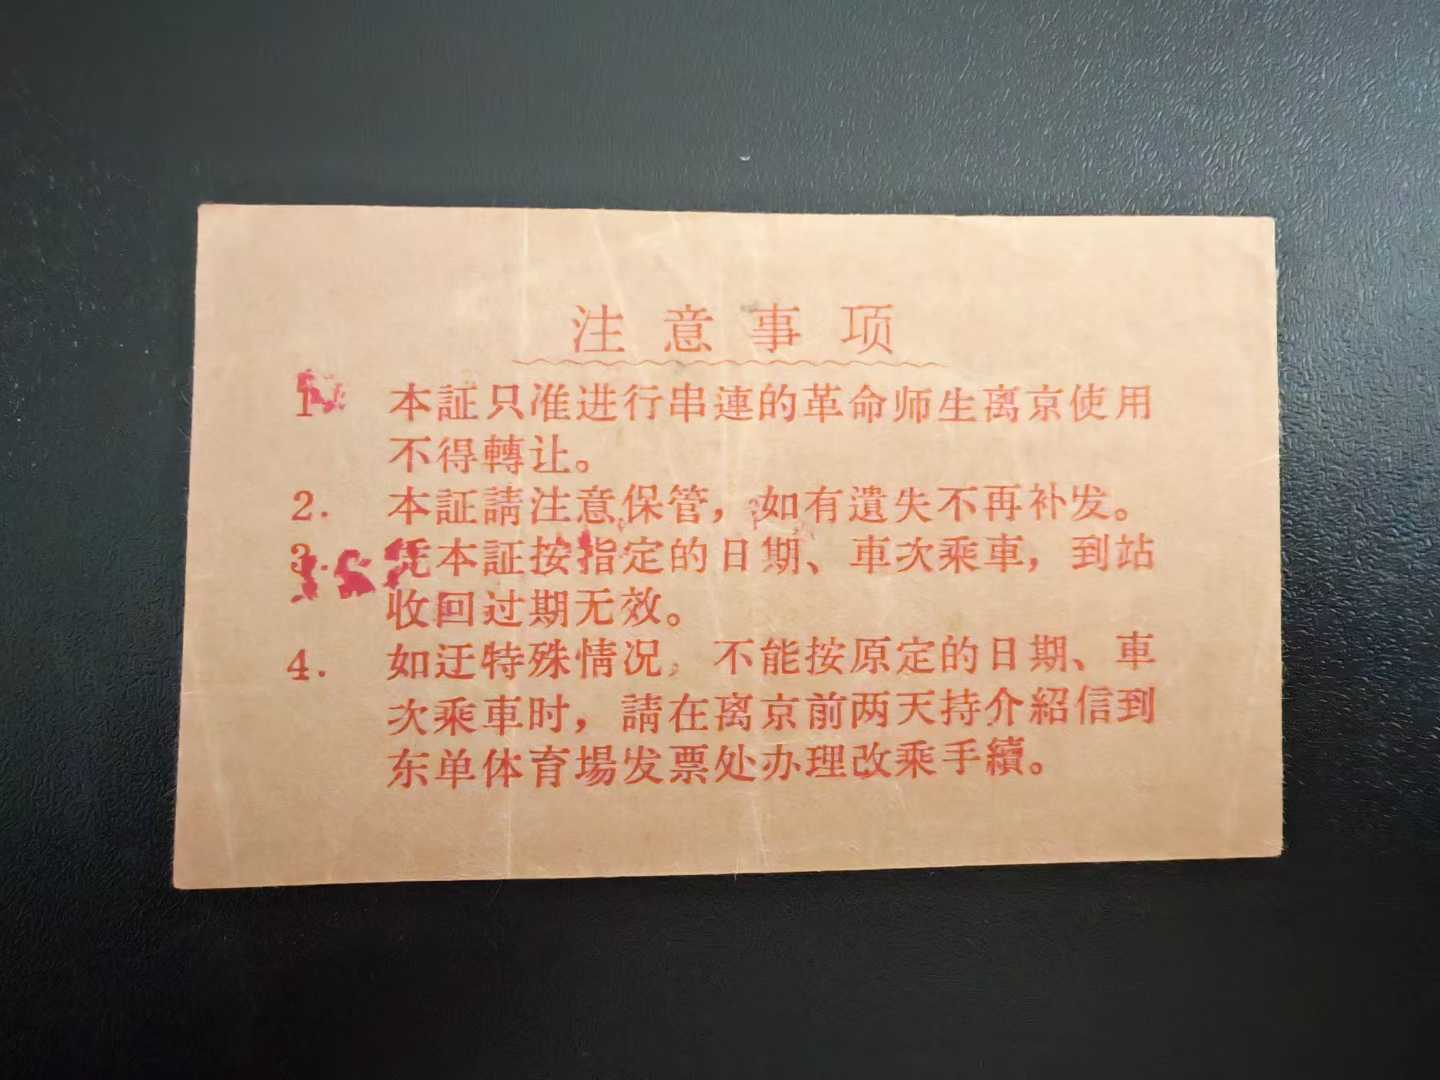 注意事项
1. 本証只准进行串連的革命师生离京使用
不得轉让。
2. 本証請注意保管，如有遺失不再补发。
3. 凭本証按指定的日期、車次乘車，到站
收回过期无效。
4. 如迂特殊情况，不能按原定的日期、車
次乘車时，請在离京前两天持介紹信到
东单体育場发票处办理改乘手續。